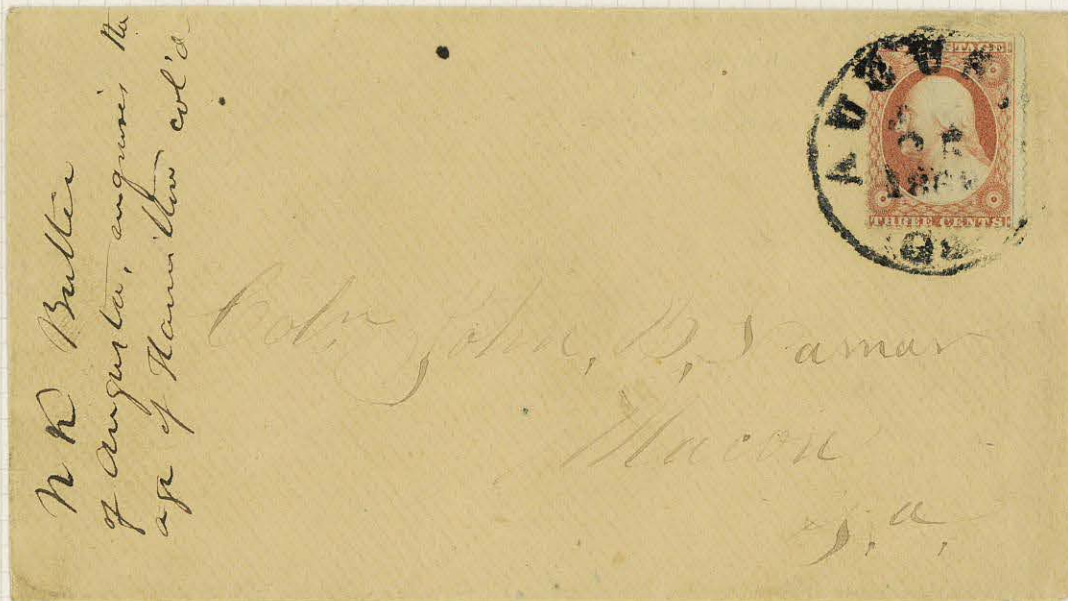 N K Butler
of Augusta, enquires the
age of Hamilton col'd
AUGUS
5
186
THREE CENTS
Colo. John. B. Lamar
Macon
Ga.